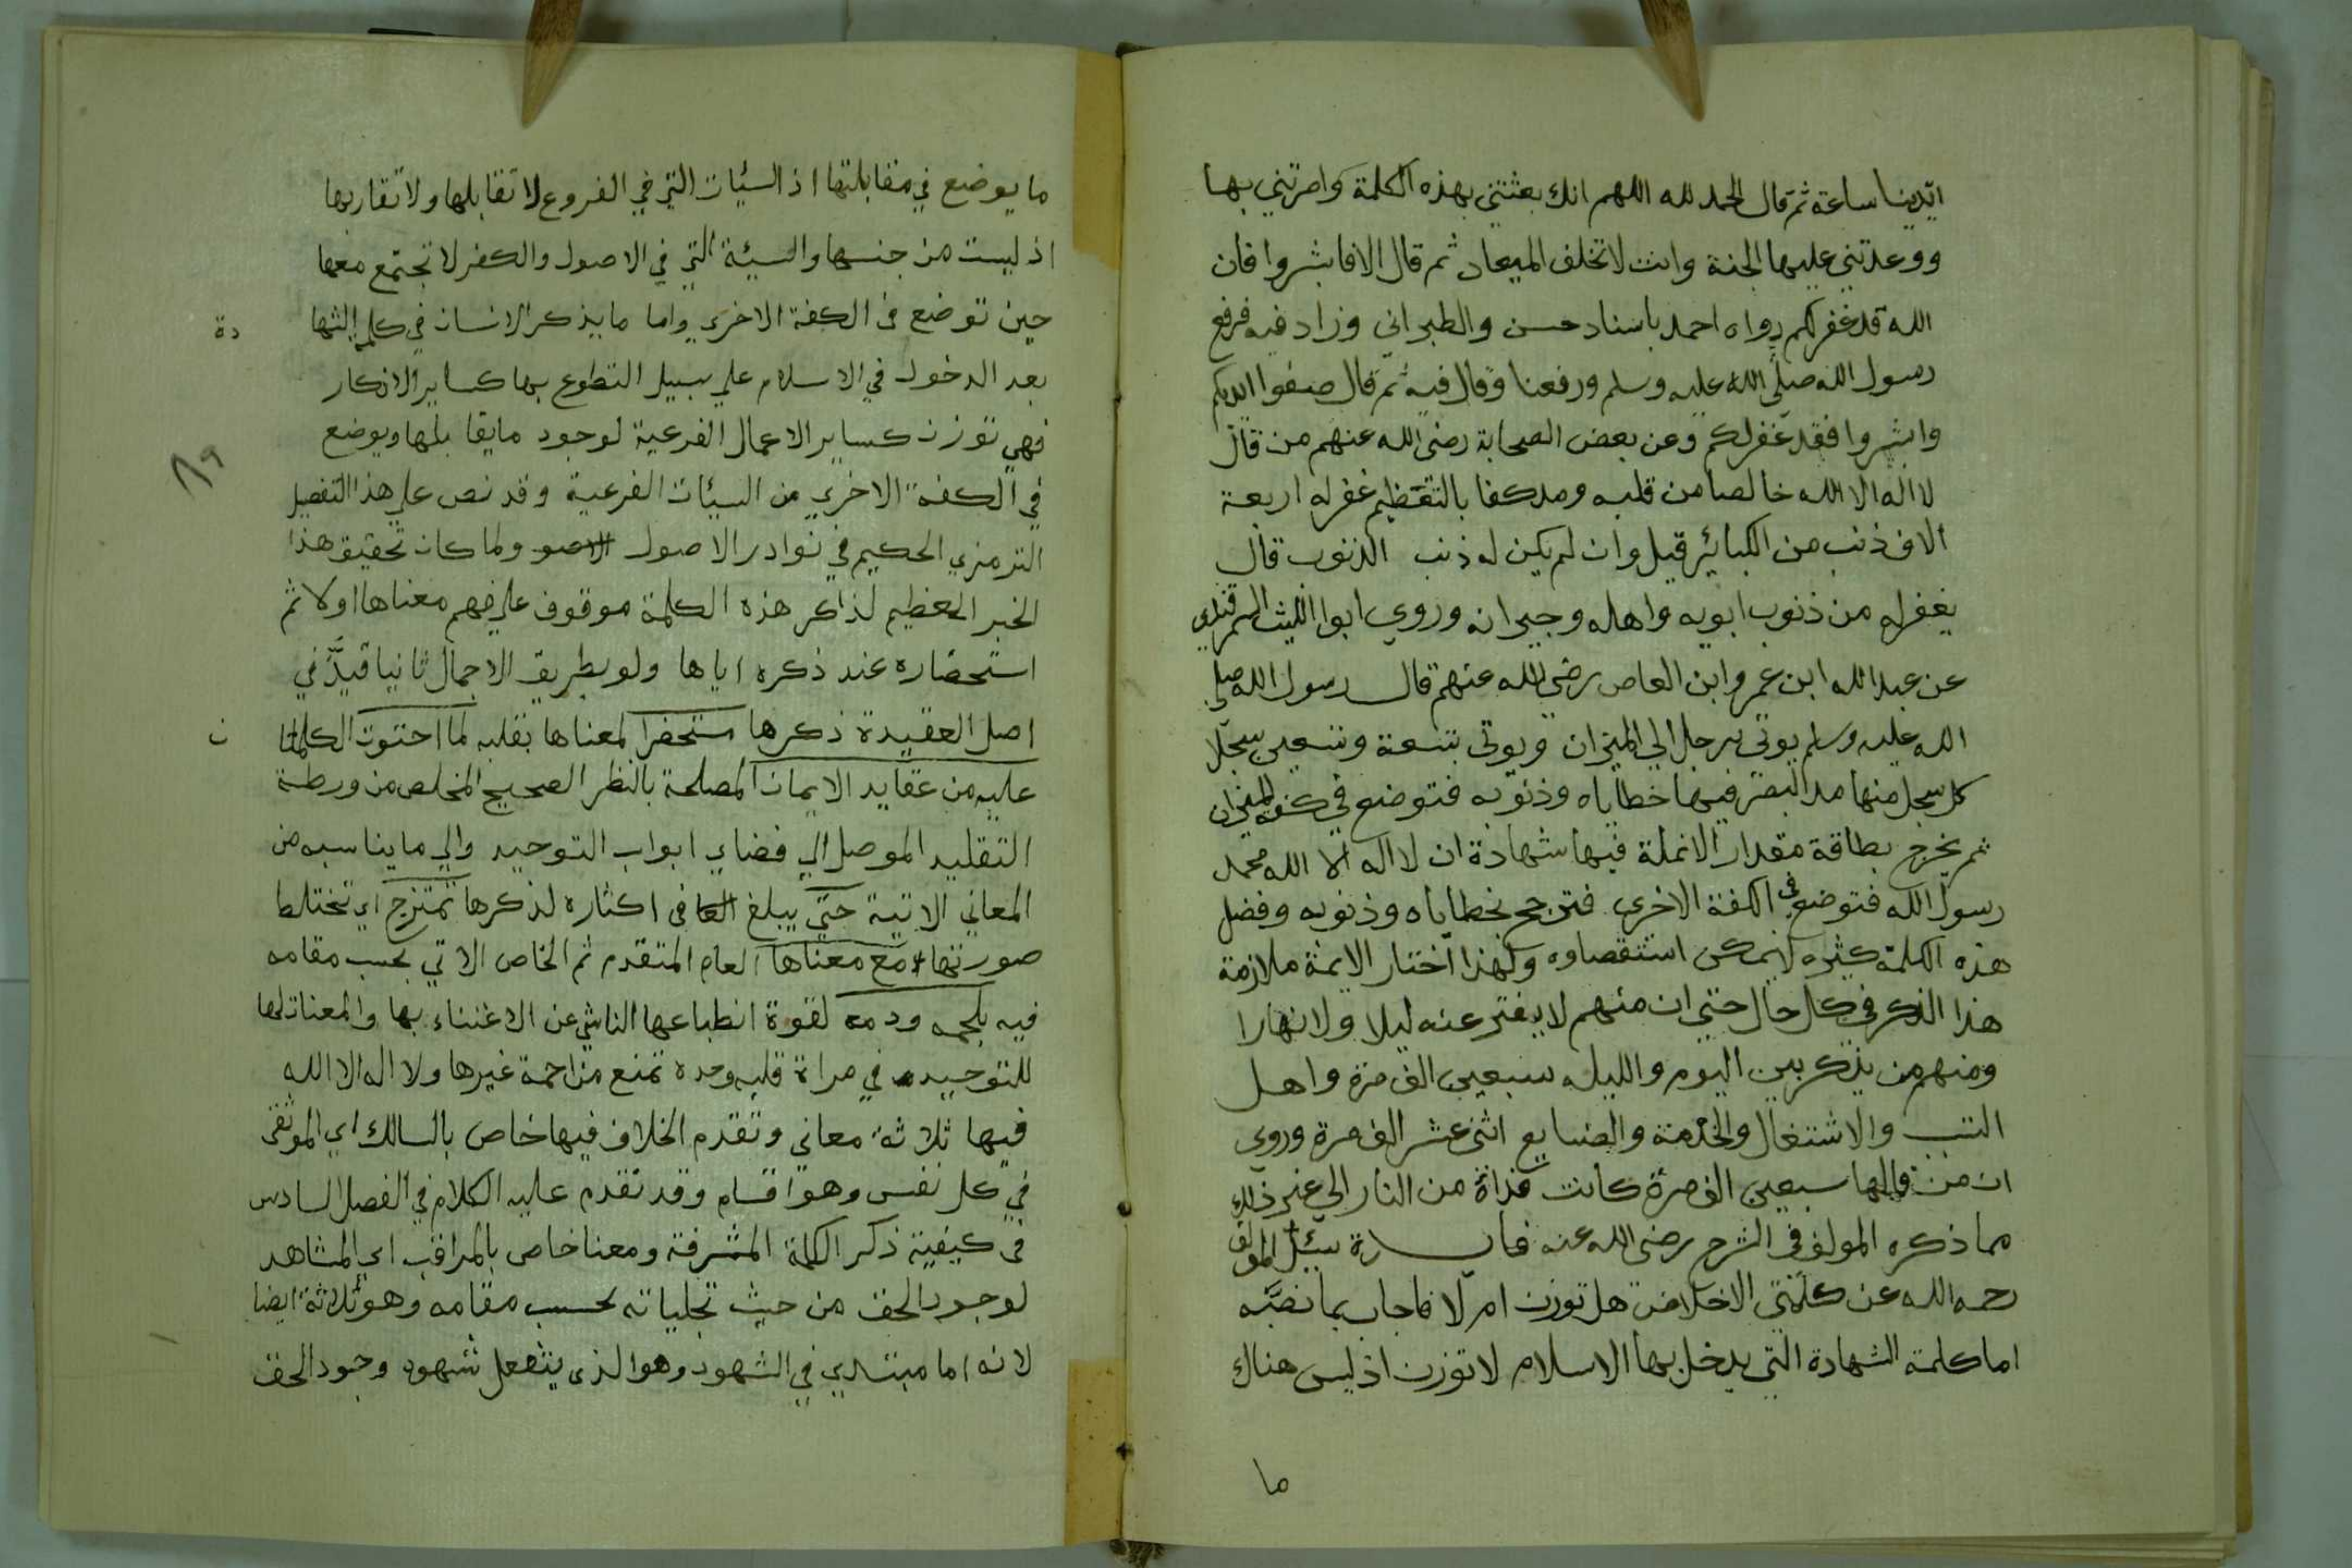 ايدينا ساعة ثم قال الحمد لله اللهم انك بعثتني بهذه الكلمة وامرتني بها
ووعدتني عليها الجنة وانت لا تخلف الميعاد ثم قال الا فابشروا فان
الله قد غفر لكم رواه احمد باسناد حسن والطبراني وزاد فيه فرفع
رسول الله صلى الله عليه وسلم ورفعنا وقال فيه ثم قال ضعوا ايديكم
وابشروا فقد غفر لكم وعن بعض الصحابة رضى الله عنهم من قال
لا اله الا الله خالصا من قلبه ومدكفا بالتعظيم غفر له اربعة
الاف ذنب من الكبائر قيل وان لم يكن له ذنب الذنوب قال
يغفر له من ذنوب ابويه واهله وجيرانه وروي ابوا الليث السمرقندي
عن عبد الله ابن عمر وابن العاص رضى الله عنهم قال رسول الله صلى
الله عليه وسلم يوتى برجل الي الميزان ويوتى بتسعة وتسعين سجلا
كل سجل منها مد البصر فيها خطاياه وذنوبه فتوضع في كفة الميزان
ثم يخرج بطاقة مقدار الانملة فيها شهادة ان لا اله الا الله محمد
رسول الله فتوضع في الكفة الاخرى فترجح بخطاياه وذنوبه وفضل
هذه الكلمة كثيره لا يمكن استقصاوه ولهذا اختار الايمة ملازمة
هذا الذكر في كل حال حتى ان منهم لا يفتر عنه ليلا ولا نهارا
ومنهم من يذكر بين اليوم والليله سبعين الف مرة واهل
التسبب والاشتغال والخدمة والصنايع اثنى عشر الف مرة وروي
ان من قالها سبعين الف مرة كانت فداة من النار الي غير ذلك
مما ذكره المولف في الشرح رضى الله عنه فايدة سئل المولف
رحمه الله عن كلمتي الاخلاص هل توزن ام لا فاجاب بما نصه
اما كلمة الشهادة التي يدخل بها الاسلام لا توزن اذ ليس هناك
ما
ما يوضع في مقابلتها اذ السيئات التي في الفروع لا تقابلها ولا تقاربها
اذ ليست من جنسها والسيئة التي في الاصول والكفر لا تجتمع معها
حين توضع في الكفة الاخرى واما ما يذكر الانسان في كلمة الشها
دة
بعد الدخول في الاسلام علي سبيل التطوع بها كساير الاذكار
فهي توزن كساير الاعمال الفرعية لوجود ما يقابلها ويوضع
٨٩
في الكفة الاخرى من السيئات الفرعية وقد نص علي هذا التفصيل
الترمزي الحكيم في نوادر الاصول الاصو ولما كان تحقيق هذا
الخبر العظيم لذاكر هذه الكلمة موقوف على فهم معناها اولا ثم
استحضاره عند ذكره اياها ولو بطريق الاجمال ثانيا قيد في
اصل العقيدة ذكرها مستحضرا لمعناها بقلبه لما احتوت الكلمتا
ن
عليه من عقايد الايمان المصلحة بالنظر الصحيح المخلص من ورطة
التقليد الموصل الي فضاي ابواب التوحيد والي ما يناسبه من
المعاني الاتية حتى يبلغ العا في اكثاره لذكرها تمتزج اي تختلط
صورتها مع معناها العام المتقدم ثم الخاص الاتي بحسب مقامه
فيه بلحمه ودمه لقوة انطباعها الناشي عن الاعتناء بها والمعنا لها
للتوحيد في مراة قلبه وحده تمنع مزاحمة غيرها ولا اله الا الله
فيها ثلاثة معاني وتقدم الخلاف فيها خاص بالسالك اي الموثق
في كل نفس وهو اقسام وقد تقدم عليه الكلام في الفصل السادس
في كيفية ذكر الكلمة المشرفة ومعنا خاص بالمراقب اي المشاهد
لوجود الحق من حيث تجلياته بحسب مقامه وهو ثلاثة ايضا
لانه اما مبتدي في الشهود وهو الذي يتفعل شهود وجود الحق